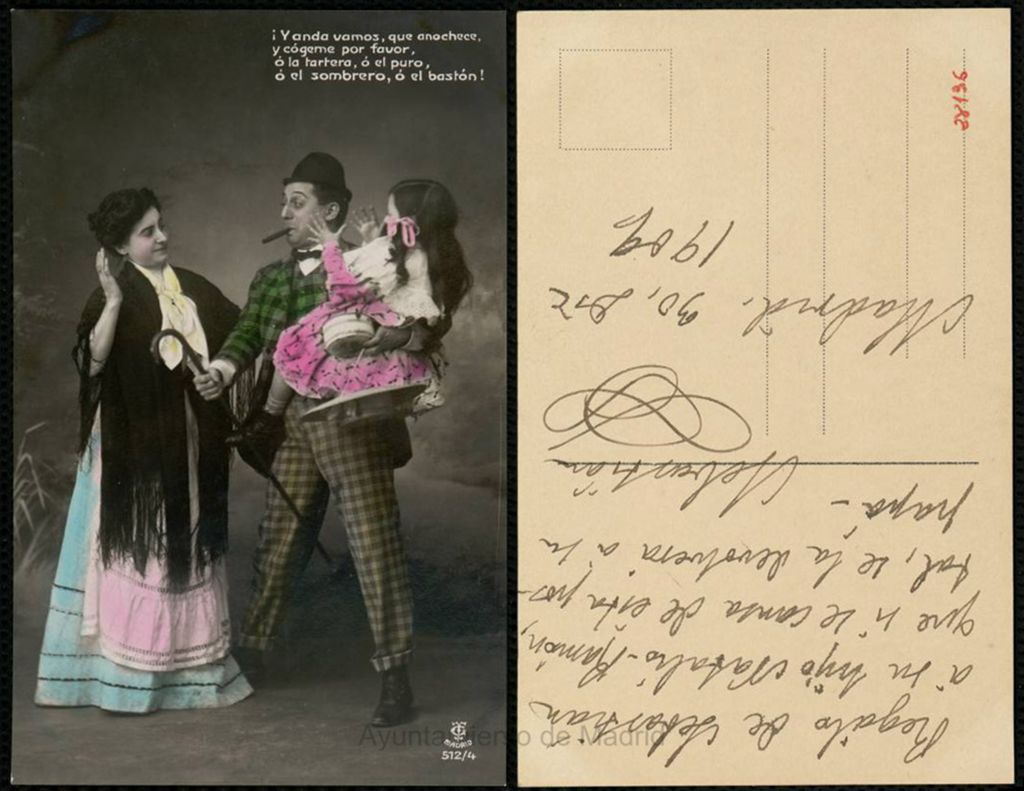 ¡Y anda vamos, que anochece,
y cógeme por favor,
ó la tartera, ó el puro,
ó el sombrero, ó el bastón!
MADRID
512/4
Ayuntamiento de Madrid
28196
Regalo de Sebastián
a su hijo Natalio-Ramón,
que si se cansa de esta pos-
tal, se la devolverá a su
papá-
Sebastián
Madrid. 30, Dic
1909